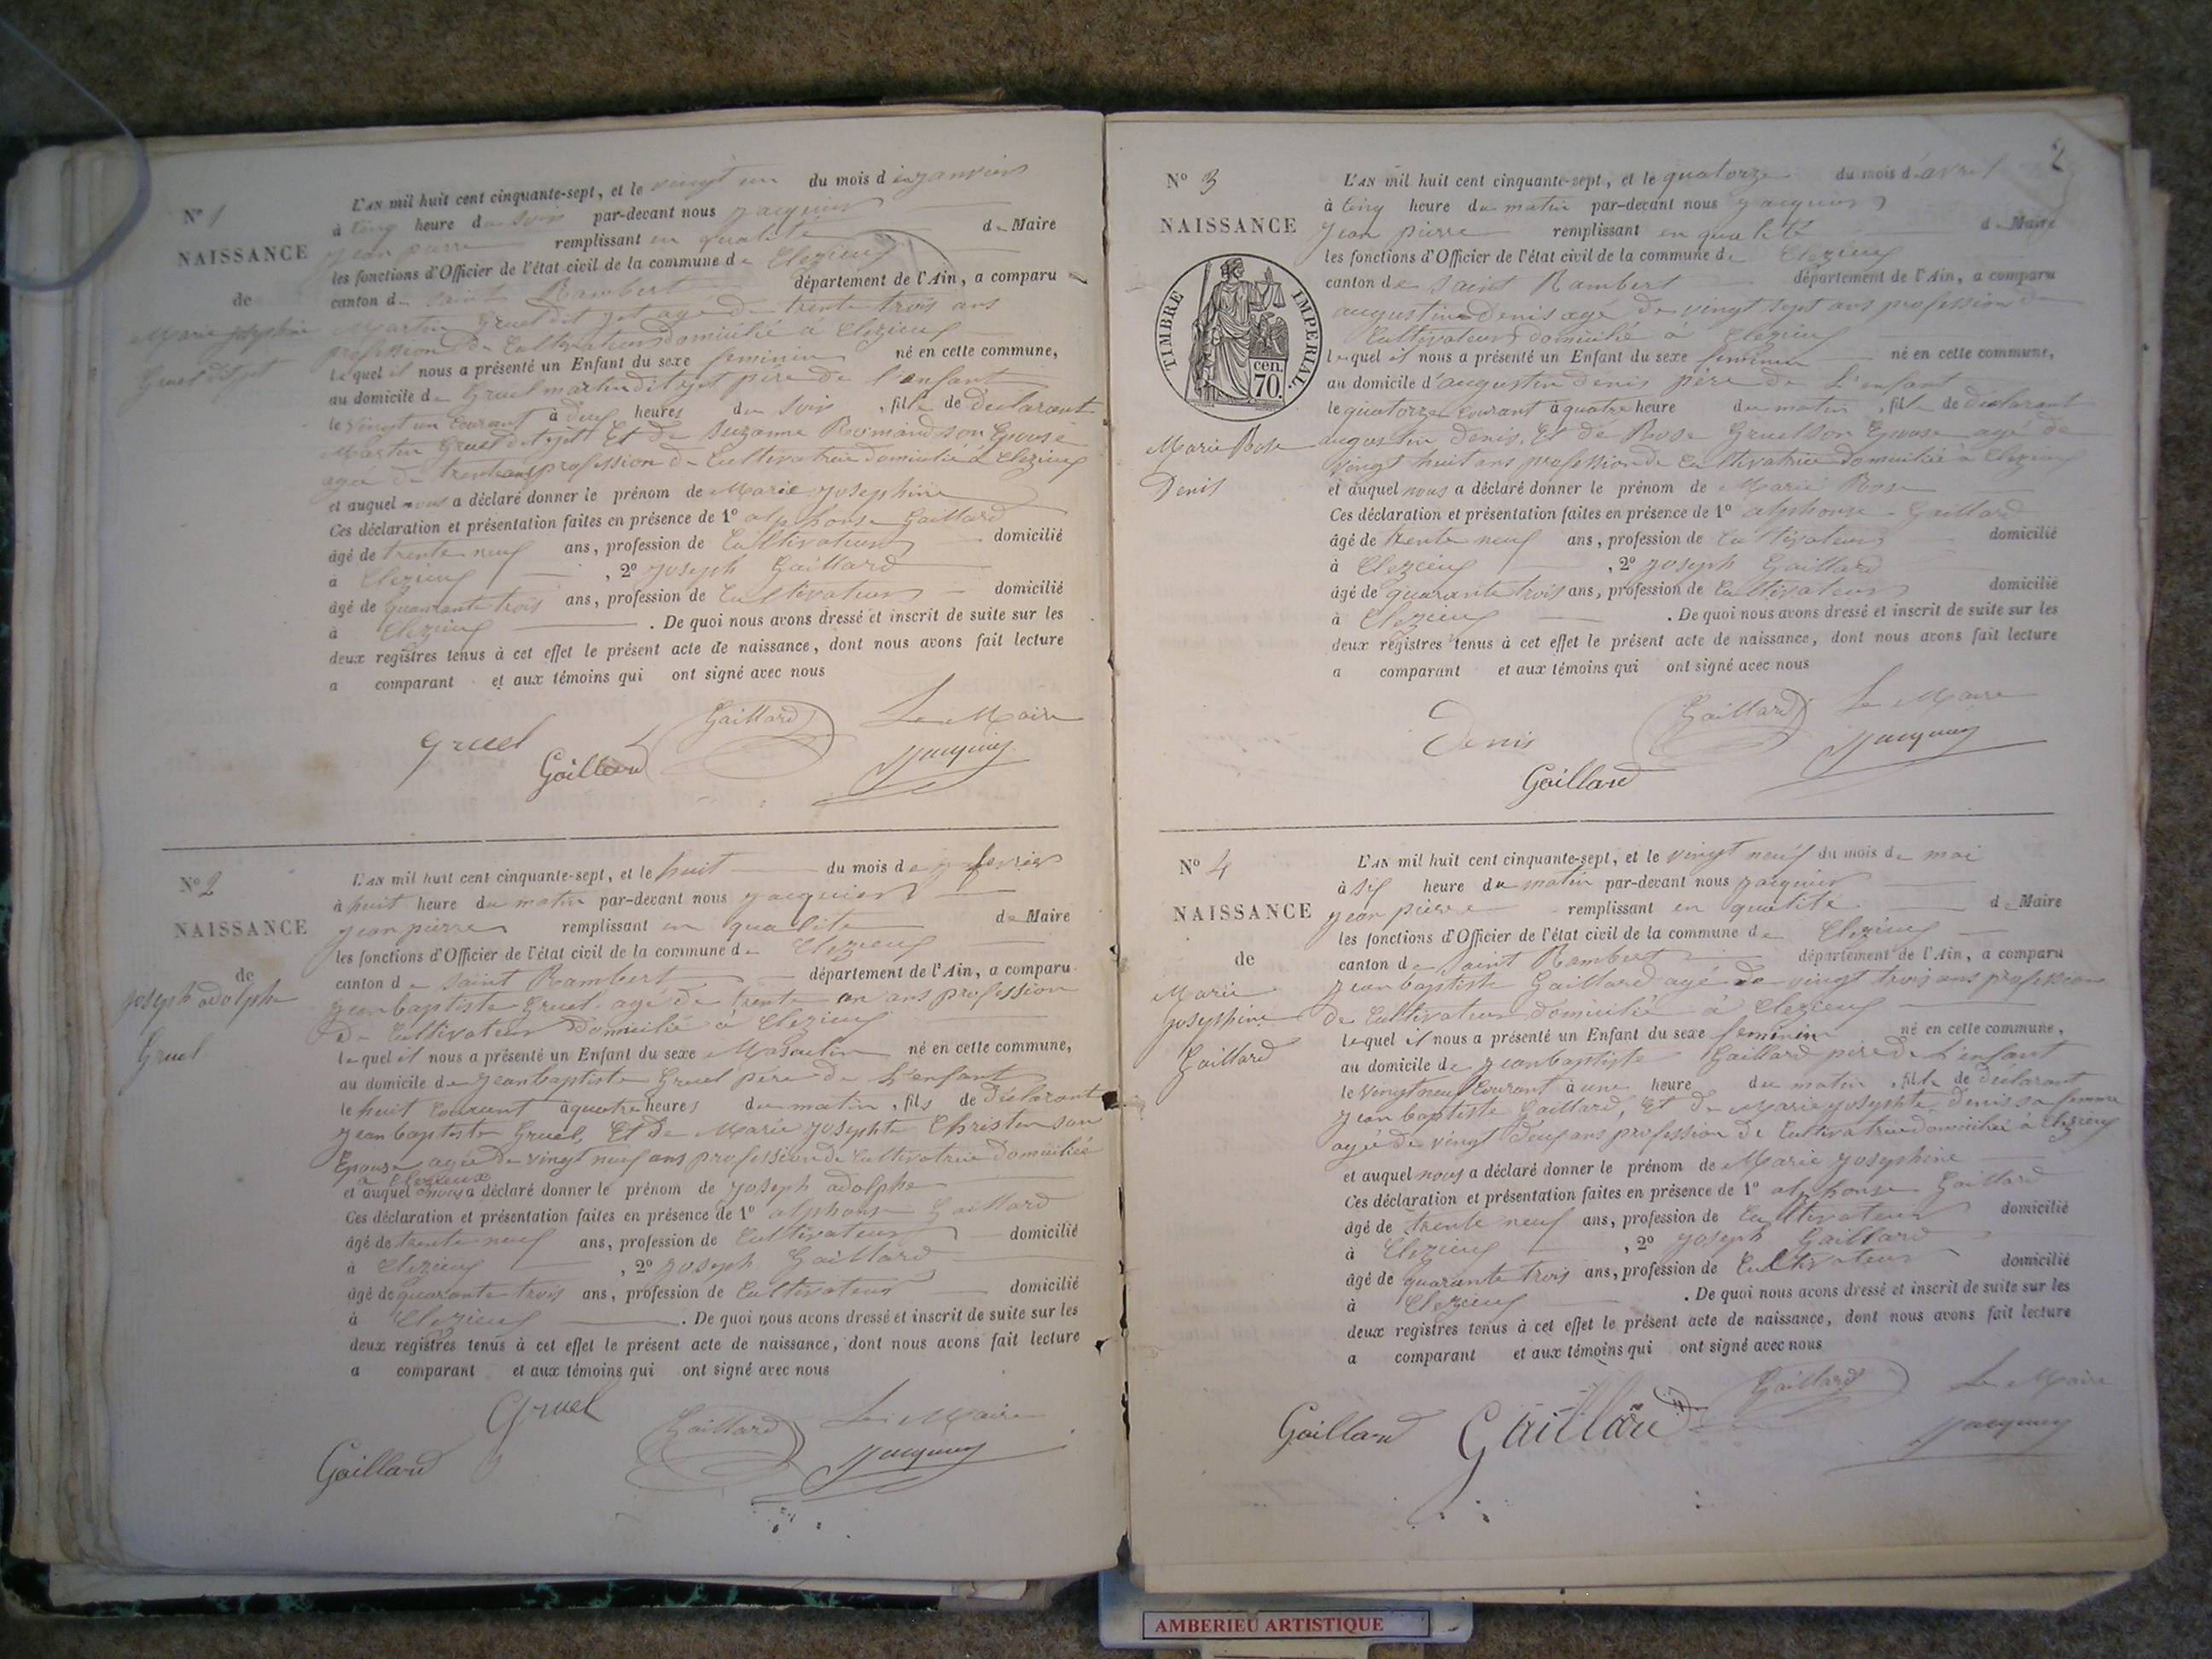 Nº 1
NAISSANCE
de
Marie Josephine
Gruel dit jet
L'AN mil huit cent cinquante-sept, et le vingt un du mois de janvier
à cinq heure du soir par-devant nous Jacquier
Jean pierre remplissant en qualité de Maire
les fonctions d'Officier de l'état civil de la commune de Clezieux
canton de Saint Rambert département de l'Ain, a comparu
Martin Gruel dit jet agé de trente trois ans
profession de Cultivateur domicilié à Clezieux
Lequel il nous a présenté un Enfant du sexe feminin né en cette commune,
au domicile de Gruel martin dit jet père de l'enfant
le vingt un Courant à deux heures du soir, fille de declarant
Martin Gruel dit jet Et de Suzanne son Epouse
agée de trente ans profession de Cultivatrice domiciliée à Clezieux
et auquel nous a déclaré donner le prénom de Marie Josephine
Ces déclaration et présentation faites en présence de 1º alphonse Gaillard
âgé de trente neuf ans, profession de Cultivateur domicilié
à Clezieux, 2º Joseph Gaillard
âgé de quarante trois ans, profession de Cultivateur domicilié
à Clezieux. De quoi nous avons dressé et inscrit de suite sur les
deux registres tenus à cet effet le présent acte de naissance, dont nous avons fait lecture
a comparant et aux témoins qui ont signé avec nous
Gruel Gaillard Gaillard Le Maire
Jacquier
Nº 2
NAISSANCE
de
Joseph adolphe
Gruel
L'AN mil huit cent cinquante-sept, et le huit du mois de fevrier
à huit heure du matin par-devant nous Jacquier
Jean pierre remplissant en qualité de Maire
les fonctions d'Officier de l'état civil de la commune de Clezieux
canton de Saint Rambert département de l'Ain, a comparu
Jean baptiste Gruel agé de trente un ans profession
De Cultivateur Domicilié à Clezieux
lequel il nous a présenté un Enfant du sexe Masculin né en cette commune,
au domicile de Jean baptiste Gruel père de L'enfant
le huit Courant à quatre heures du matin, fils de Déclarant
Jean baptiste Gruel, Et de Marie Josephte Christin son
Epouse agée de vingt neuf ans profession de Cultivatrice Domiciliée
a Clezieux
et auquel nous a déclaré donner le prénom de Joseph adolphe
Ces déclaration et présentation faites en présence de 1º alphonse Gaillard
âgé de trente neuf ans, profession de Cultivateur domicilié
à Clezieux, 2º Joseph Gaillard
âgé de quarante trois ans, profession de Cultivateur domicilié
à Clezieux. De quoi nous avons dressé et inscrit de suite sur les
deux registres tenus à cet effet le présent acte de naissance, dont nous avons fait lecture
a comparant et aux témoins qui ont signé avec nous
Gruel Gaillard Le Maire
Gaillard Jacquier
2
Nº 3
NAISSANCE
TIMBRE IMPERIAL.
cen.
70.
Marie Rose
Denis
L'AN mil huit cent cinquante-sept, et le quatorze du mois d'avril
à cinq heure du matin par-devant nous Jacquier
Jean pierre remplissant en qualité de Maire
les fonctions d'Officier de l'état civil de la commune de Clezieux
canton de Saint Rambert département de l'Ain, a comparu
augustin Denis agé de vingt sept ans profession de
Cultivateur domicilié à Clezieux
lequel il nous a présenté un Enfant du sexe feminin né en cette commune,
au domicile d'augustin denis père de L'enfant
le quatorze Courant à quatre heure du matin, fille de declarant
augustin Denis, Et de Rose Gruel son Epouse agé de
vingt huit ans profession de Cultivatrice Domiciliée à Clezieux
et auquel nous a déclaré donner le prénom de Marie Rose
Ces déclaration et présentation faites en présence de 1º alphonse Gaillard
âgé de trente neuf ans, profession de Cultivateur domicilié
à Clezieux, 2º Joseph Gaillard
âgé de quarante trois ans, profession de Cultivateur domicilié
à Clezieux. De quoi nous avons dressé et inscrit de suite sur les
deux registres tenus à cet effet le présent acte de naissance, dont nous avons fait lecture
a comparant et aux témoins qui ont signé avec nous
Denis Gaillard Le Maire
Gaillard Jacquier
Nº 4
NAISSANCE
de
Marie
Josephine
Gaillard
L'AN mil huit cent cinquante-sept, et le vingt neuf du mois de mai
à six heure du matin par-devant nous Jacquier
Jean pierre remplissant en qualité de Maire
les fonctions d'Officier de l'état civil de la commune de Clezieux
canton de Saint Rambert département de l'Ain, a comparu
Jean baptiste Gaillard agé de vingt trois ans profession
De Cultivateur domicilié à Clezieux
Lequel il nous a présenté un Enfant du sexe feminin né en cette commune,
au domicile de Jean baptiste Gaillard père de L'enfant
le Vingt neuf Courant à une heure du matin, fille de Déclarant
Jean baptiste Gaillard, Et de Marie Josephte Denis sa femme
agée de vingt deux ans profession de Cultivatrice domiciliée à Clezieux
et auquel nous a déclaré donner le prénom de Marie Josephine
Ces déclaration et présentation faites en présence de 1º alphonse Gaillard
âgé de trente neuf ans, profession de Cultivateur domicilié
à Clezieux, 2º Joseph Gaillard
âgé de quarante trois ans, profession de Cultivateur domicilié
à Clezieux. De quoi nous avons dressé et inscrit de suite sur les
deux registres tenus à cet effet le présent acte de naissance, dont nous avons fait lecture
a comparant et aux témoins qui ont signé avec nous
Gaillard Gaillard Gaillard Le Maire
Jacquier
AMBERIEU ARTISTIQUE